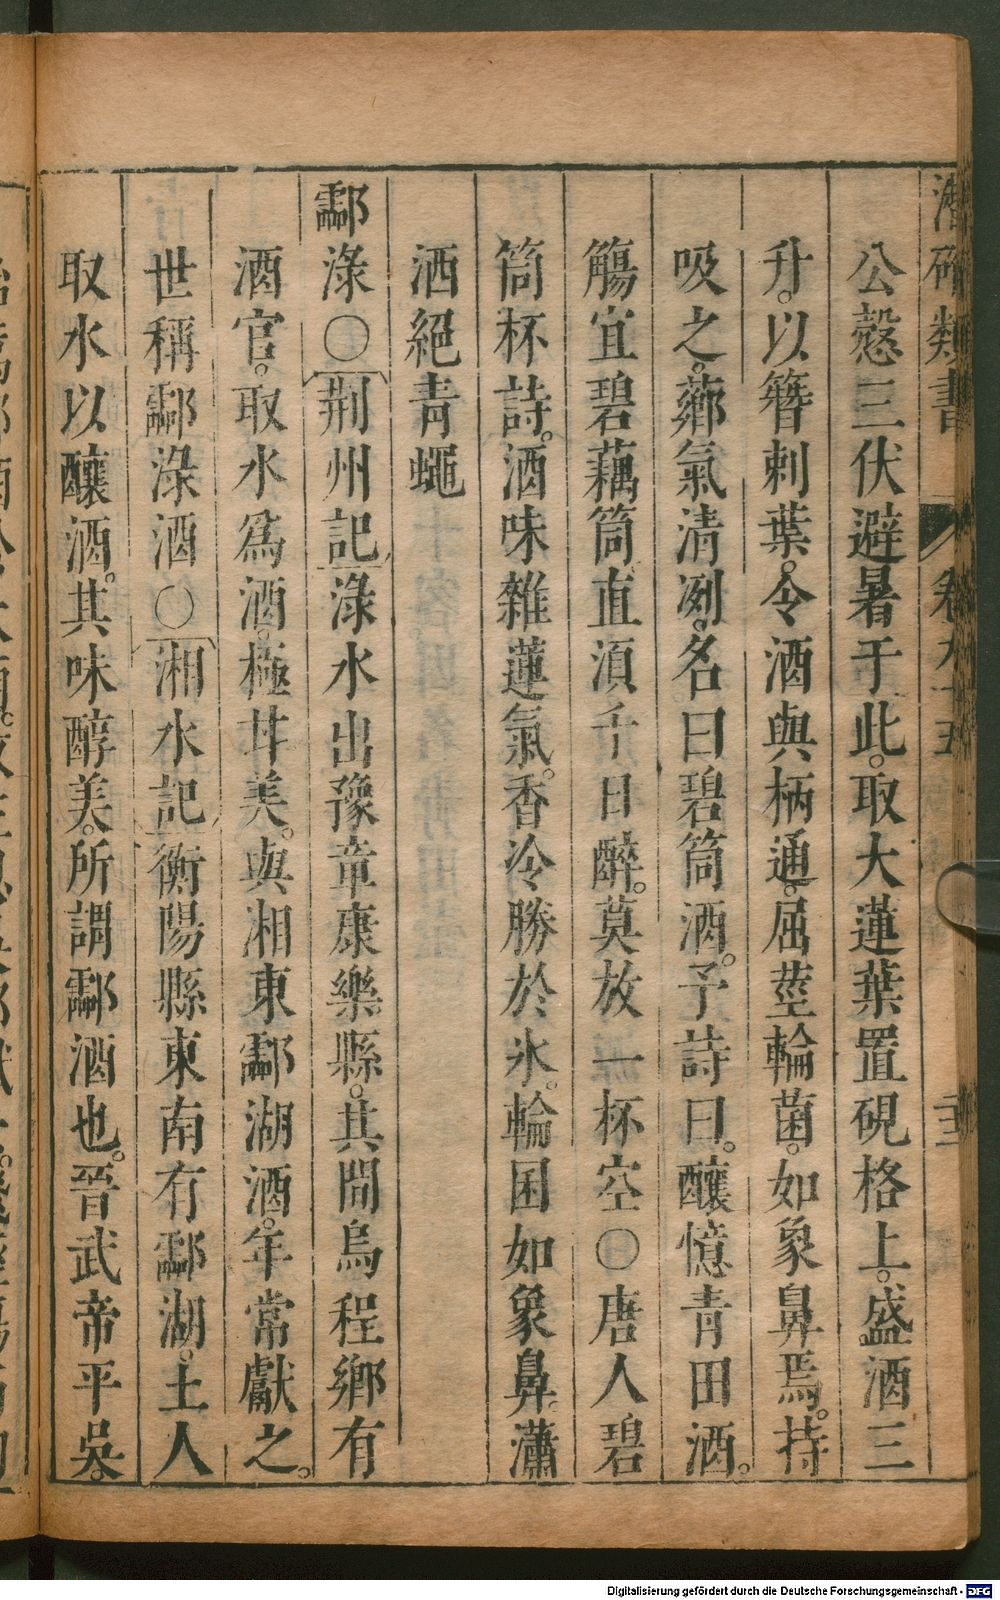 潛確類書 卷九十五 二十三
公愨三伏避暑于此。取大蓮葉置硯格上。盛酒三
升。以簪刺葉。令酒與柄通。屈莖輪菌。如象鼻焉。持
吸之。薌氣清冽。名曰碧筒酒。予詩曰。釀憶青田酒。
觴宜碧藕筒直須千日醉。莫放一杯空〇唐人碧
筒杯詩。酒味雜蓮氣。香冷勝於氷。輪囷如象鼻。瀟
洒絕靑蠅
酃淥〇荆州記淥水出豫章康樂縣。其間烏程鄉有
酒官。取水爲酒。極甘美。與湘東酃湖酒。年常獻之。
世稱酃淥酒〇湘水記衡陽縣東南有酃湖。土人
取水以釀酒。其味醇美。所謂酃酒也。晉武帝平吳。
Digitalisierung gefördert durch die Deutsche Forschungsgemeinschaft - DFG